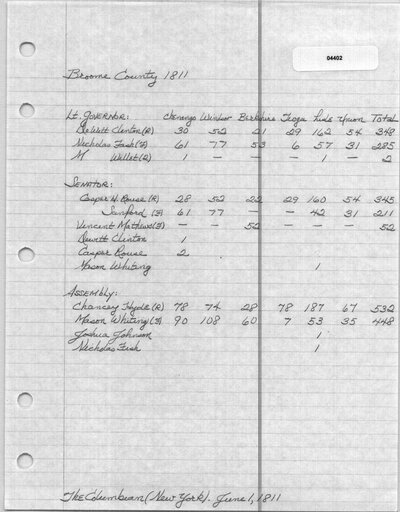 04402
Broome County 1811
Lt. Governor: Chenango Windsor Berkshire Tioga Lisle Union Total
DeWitt Clinton (R) 30 52 21 29 162 54 348
Nicholas Fish (F) 61 77 53 6 57 31 285
M Willet (R) 1 — — — 1 — 2
Senator:
Casper M. Rouse (R) 28 52 22 29 160 54 345
Sanford (F) 61 77 — — 42 31 211
Vincent Mathews (F) — — 52 — — — 52
Dewitt Clinton 1
Casper Rouse 2
Mason Whiting 1
Assembly:
Chancey Hyde (R) 78 74 28 78 187 67 532
Mason Whiting (F) 90 108 60 7 53 35 448
Joshua Johnson 1
Nicholas Fish 1
The Columbian (New York). June 1, 1811